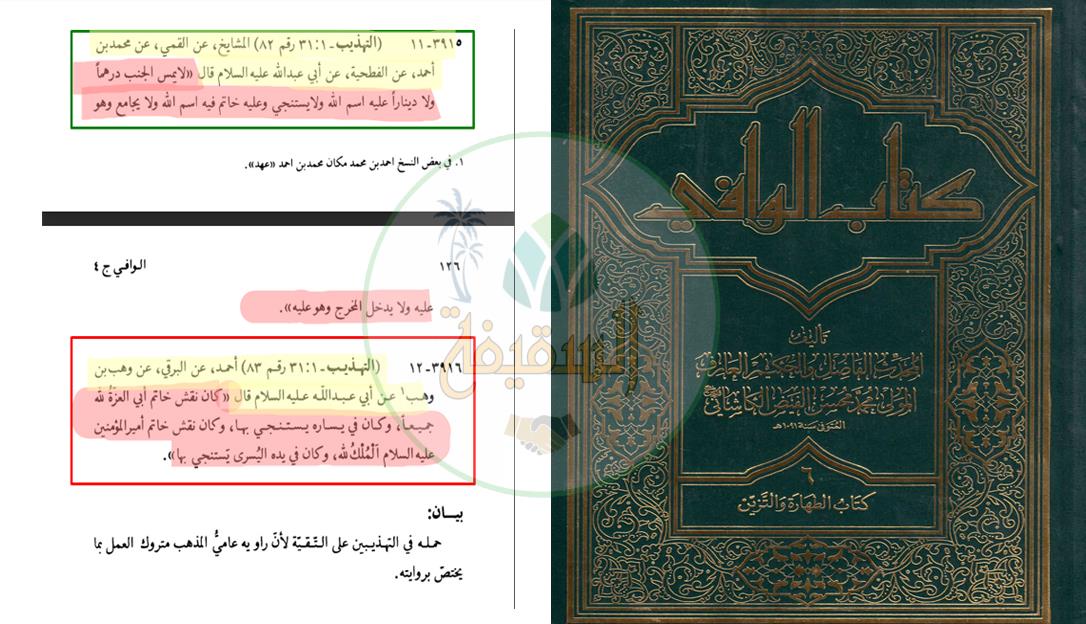 ١١-٣٩١٥ (التهذيب-٣١:١ رقم ٨٢) المشايخ، عن القمي، عن محمدبن
أحمد، عن الفطحية، عن أبي عبدالله عليه السلام قال «لايمس الجنب درهماً
ولا ديناراً عليه اسم الله ولايستنجي وعليه خاتم فيه اسم الله ولا يجامع وهو
١. في بعض النسخ احمدبن محمد مكان محمدبن احمد «عهد».
١٢٦ الوافي ج ٤
عليه ولا يدخل المخرج وهو عليه».
١٢-٣٩١٦ (التهذيب-٣١:١ رقم ٨٣) أحمد، عن البرقي، عن وهب بن
وهب١ عن أبي عبدالله عليه السلام قال «كان نقش خاتم أبي العزة لله
جميعاً، وكان في يساره يستنجي بها، وكان نقش خاتم أميرالمؤمنين
عليه السلام اَلْمُلْكُ لله، وكان في يده اليُسرى يَستنجي بها».
بيان:
حمله في التهذيبين على التقيّة لأنّ راويه عاميُّ المذهب متروك العمل بما
يختصّ بروايته.
السقيفة
كتاب الوافي
تأليف
المحدث الفاضل والحكيم العارف
المولى محمد محسن الفيض الكاشاني
المتوفى سنة ١٠٩١ هـ
٦
كتاب الطهارة والتزين